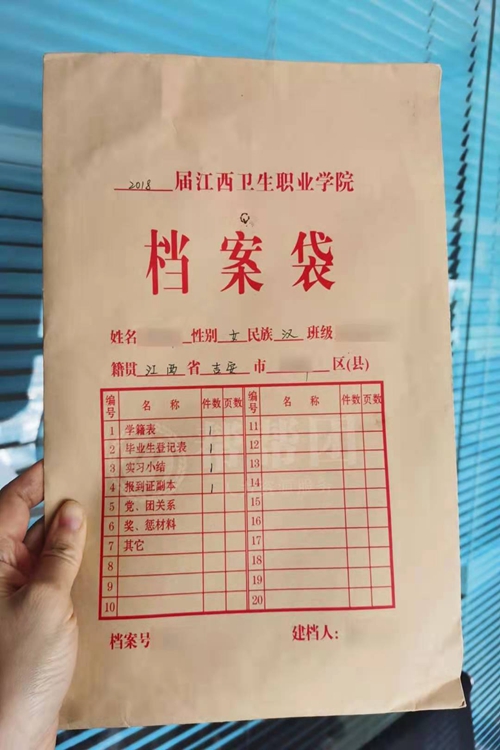 2018 届江西卫生职业学院
档案袋
姓名 性别 女 民族 汉 班级
籍贯 江西 省 吉安 市 区(县)
编号 名称 件数 页数 编号 名称 件数 页数
1 学籍表 1 11
2 毕业生登记表 1 12
3 实习小结 1 13
4 报到证副本 1 14
5 党、团关系 15
6 奖、惩材料 16
7 其它 17
8 18
9 19
10 20
档案号 建档人: